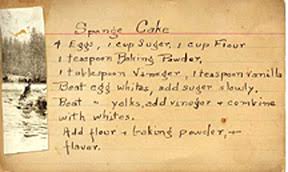 Sponge Cake
4 Eggs, 1 cup Sugar, 1 cup Flour
1 teaspoon Baking Powder,
1 tablespoon Vinegar, 1 teaspoon vanilla
Beat egg whites, add sugar slowly.
Beat " yolks, add vinegar & combine
with whites.
Add flour & baking powder, &
flavor.